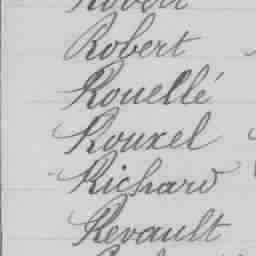 Robert
Robert
Rouellé
Rouxel
Richard
Revault